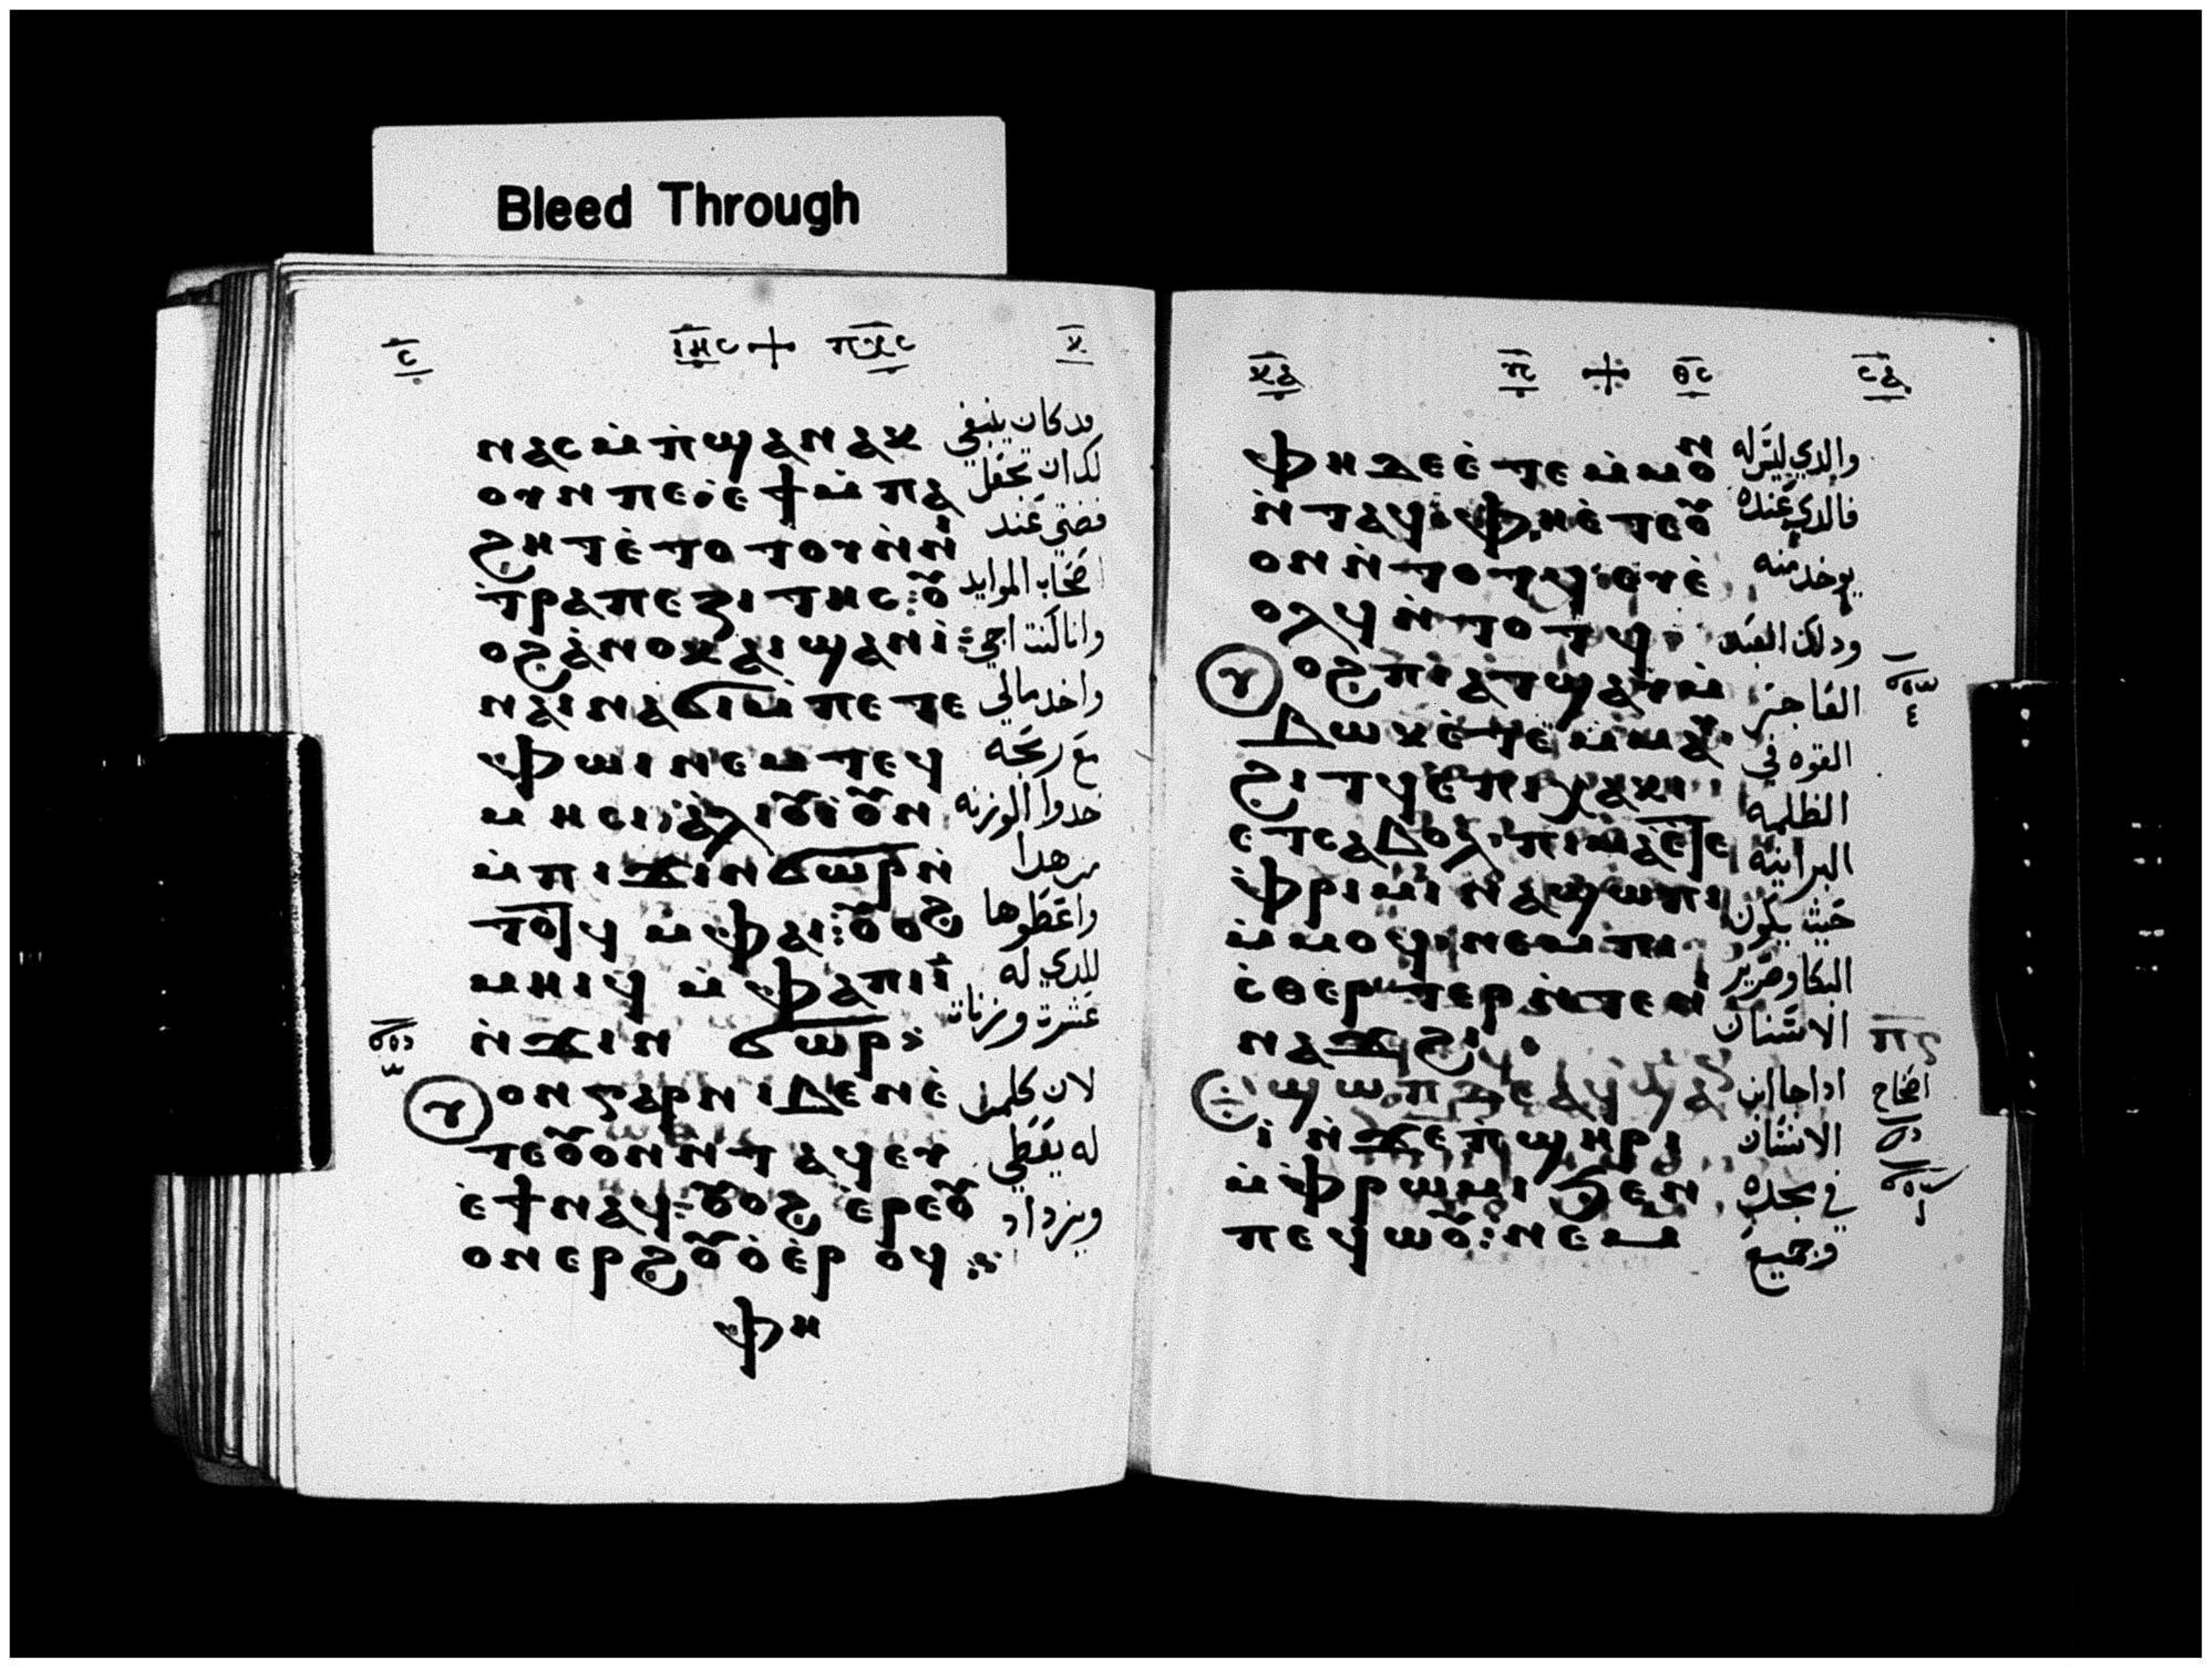 ⲥ̅ ⲓⲏ̅ⲥ + ⲡⲭ̅ⲥ ⲕ̅
ⲛⲁⲥⲙ̀ⲡ̀ϣⲁⲛⲁⲕ وركان ينبغي
ⲟⲩⲛⲡⲉ:ⲉ̀ϯⲙ̀ⲡⲁ لك ان تجعل
ϩⲏⲧⲉ̀ⲧⲟⲧⲟⲩⲛ̀ⲛⲓ فضتي عند
ⲧ̀ⲣⲁⲡⲉⲍⲓⲧⲏⲥ:ⲟⲩ اصحاب الموايد
ⲟϩⲁ̀ⲛⲟⲕⲁⲓϣⲁⲛⲓ̀: وانا كنت اجي
ⲛⲁⲓⲛⲁϭⲓⲙ̀ⲡⲉⲧⲉ واخد مالي
ⲫⲱⲓⲛⲉⲙⲧⲉϥ مع ربحه
ⲙⲏⲥⲓ:ⲁ̀ⲗⲓⲟⲩⲓ̀ⲟⲩⲛ خدوا الوزنه
ⲙ̀ⲡⲓϫⲓⲛϭⲱⲣⲛ̀ من هدا
ⲧⲟⲧϥ ⲙ̀ⲫⲁⲓ:ⲟⲩⲟϩ واعطوها
ⲙⲏⲓϥ ⲙ̀ⲫⲁⲡⲓⲓ̅ للدي له
ⲛ̀ϫⲓⲛ ϭⲱⲣ: عشرت وزنات
ⲟⲛⲅⲁⲣⲛⲓⲃⲉⲛⲉ̀ لان كلمن
ⲧⲉⲟⲩⲟⲛⲛ̀ⲧⲁϥⲉⲩ له يعطي
ⲉ̀ϯⲛⲁϥ:ⲟⲩⲟϩ ⲉ̀ⲣⲉⲟⲩ ويزداد
ⲟⲛⲉⲣϩⲟⲩⲟ̀ⲉ̀ⲣ ⲟϥ:
ⲫⲏ
ⲕ̅ⲁ̅ ⲡ̅ⲥ̅ + ⲑ̅ⲥ̅ ⲥ̅ⲁ̅
ⲫⲏϫⲉⲉ̀ⲧⲉⲙ̀ⲙⲟⲩⲛ والدي ليس له
ⲛ̀ⲧⲁϥ:ⲫⲏⲉ̀ⲧⲉⲟⲩ فالدي عنده
ⲟⲛⲛ̀ⲧⲟⲧϥ:ⲉⲩⲉ̀ يوخد منه
ⲟⲗϥⲛ̀ⲧⲟⲧϥ: ودلك العبد
ⲟϩⲡⲓⲁ̀ⲧϣⲁⲩⲙ̀ الفاجر
ⲃⲱⲕⲉ̀ⲧⲉⲙ̀ⲙⲁⲩ القوه في
ϩⲓⲧϥⲉ̀ⲡⲓⲭⲁⲕⲓ الظلمه
ⲉⲧⲥⲁⲃⲟⲗ:ⲡⲓⲙⲁⲉ̀ⲧⲉ البرانيه
ⲫ̀ⲣⲓⲙⲓⲛⲁϣⲱⲡⲓ حيث يكون
ⲙ̀ⲙⲟϥ:ⲛⲉⲙⲡⲓ البكا وصرير
ⲥ̀ⲑⲉⲣⲧⲉⲣⲛ̀ⲧⲉⲛⲓ الاسنان
ⲛⲁϫϩⲓ:
ϣⲱⲡϫⲉⲁϥϣⲁ اداجا ابن اصحاح
ⲓ̀ ⲛ̀ϫⲉⲡ̀ϣⲏⲣⲓ الانسان
ⲙ̀ⲫ̀ⲣⲱⲙⲓ ϧⲉⲛ في مجده
ⲡⲉϥⲱⲟⲩ:ⲛⲉⲙ وجميع
Bleed Through